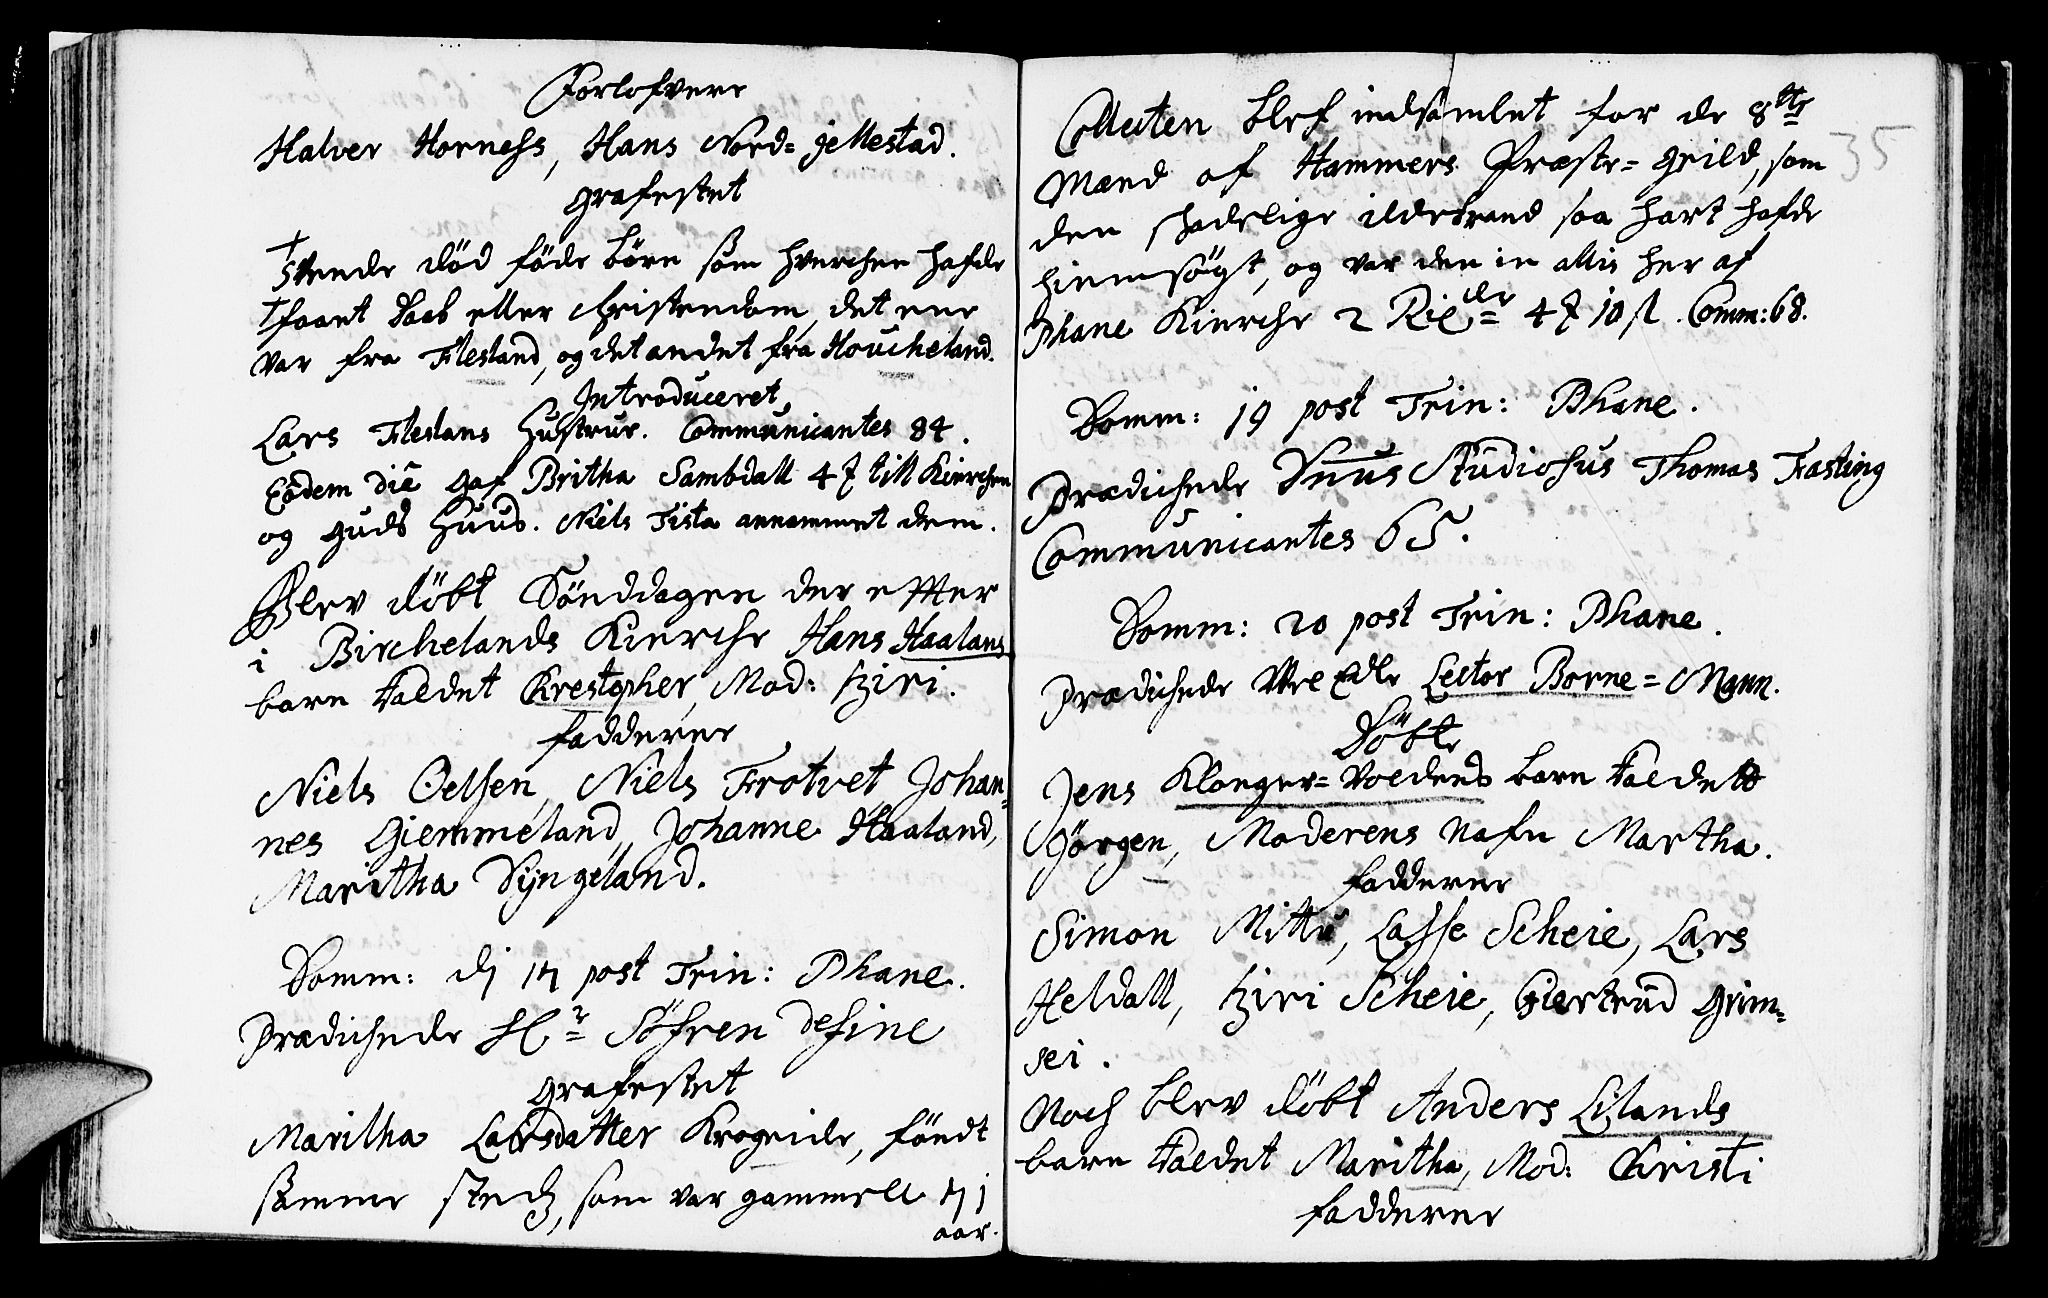 Forlofvere
Halver Horness, Hans Nord-jellestad.
grafestet
† tvende död föde börn som hverchen hafde
† faaet daab eller Christendom, det ene
var fra Flesland, og det andet fra Houcheland.
Introduceret
Lars Fleslans Hustrue. Communicantes 84.
Eodem die gaf Britha Sambdall 4 ꝑ till Kierchen
og Guds Huus. Niels Tista annammet dem.
Blev döbt Sönddagen der effter
i Birchelands Kierche Hans Haalans
barn kaldet Chrestopher, Mod: Kziri.
fadderne
Niels Oelsen, Niels Trotvet, Johan-
nes Giemmeland, Johanne Haaland,
Maritha Dÿngeland.
Domm: dj 17 post Trin: Phane.
Prædichede Hr Söfren Define
grafestet
Maritha Larsdatter Krogeide, föedt
samme sted, som var gammell 71
aar.
35
Collecten blef indsamlet for de 8te
Mænd af Hammers Præste-gield, som
den skadelige ildebrand saa hart hafde
hiemsögt, og var den in alles her af
Phane Kierche 2 Rixdlr 4 ꝑ 10 sl. Comm: 68.
Domm: 19 post Trin: Phane.
Prædichede Dnus Studiosus Thomas Fasting
Communicantes 65.
Domm: 20 post Trin: Phane.
Prædichede Edle Lector Borne-Mann.
Döbte
Jens Klonger-Voldens barn kaldett
Jörgen, Moderens nafn Martha.
fadderne
Simon Mittu, Lasse Scheie, Lars
Heldall, Kziri Scheie, Giertrud Grim-
sei.
Noch blev döbt Anders Lilands
barn kaldet Maritha, Mod: Christi
fadderne